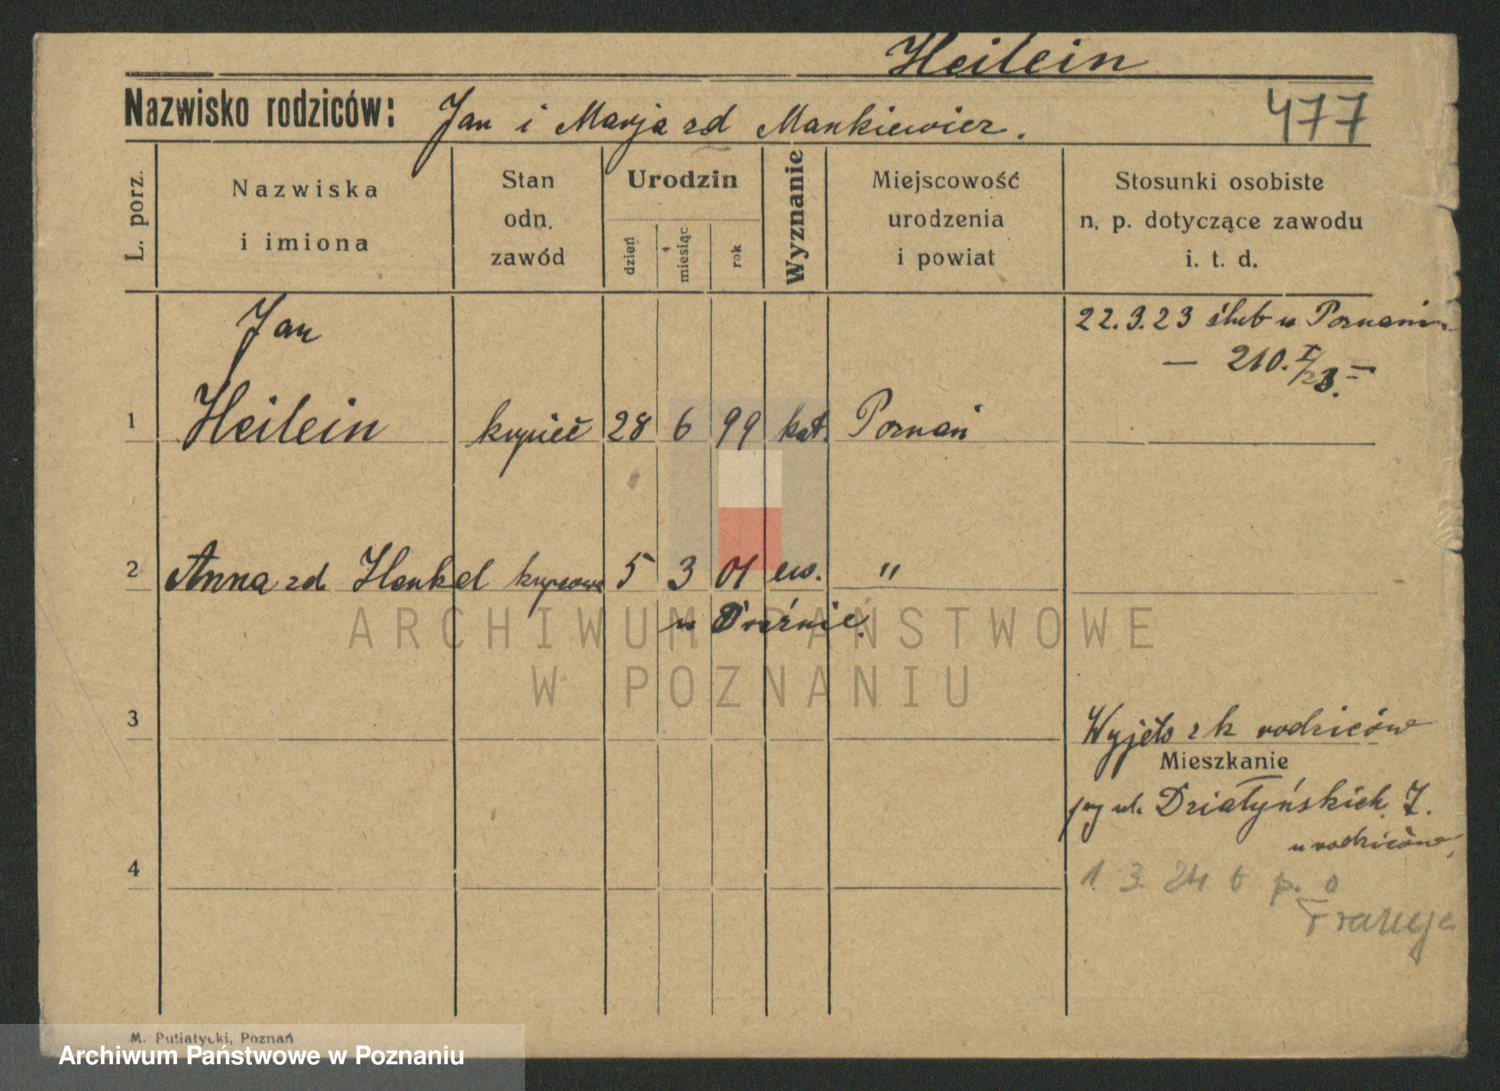 Heilein
Nazwisko rodziców: Jan i Marja zd Mankiewicz.
477
L. porz.
Nazwiska i imiona
Stan odn. zawód
Urodzin
dzień
miesiąc
rok
Wyznanie
Miejscowość urodzenia i powiat
Stosunki osobiste n. p. dotyczące zawodu i. t. d.
Jan
22.3.23 ślub w Poznaniu
— 210. I/23. =
1 Heilein kupiec 28 6 99 kat. Poznań
2 Anna zd. Henkel kupcowa 5 3 01 ew. "
w
ARCHIWUM PAŃSTWOWE
W POZNANIU
3
Wyjęto z k rodziców
Mieszkanie
przy ul. Działyńskich 7.
u rodziców,
4
1 3 24 t p. o
Francja
M. Putiatycki, Poznań
Archiwum Państwowe w Poznaniu